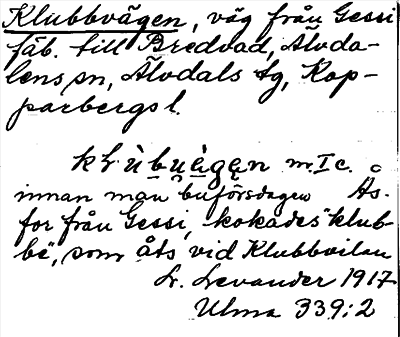 Klubbvägen, väg från Gessi
fäb. till Bredvad, Älvda-
lens sn, Älvdals tg, Kop-
parbergs l.
klùbuègẹn m. I c.
innan man buförsdagen Ås-
for från Gessi, kokades "klub-
be", som åts vid Klubbvilan
L. Levander 1917
Ulma 339:2